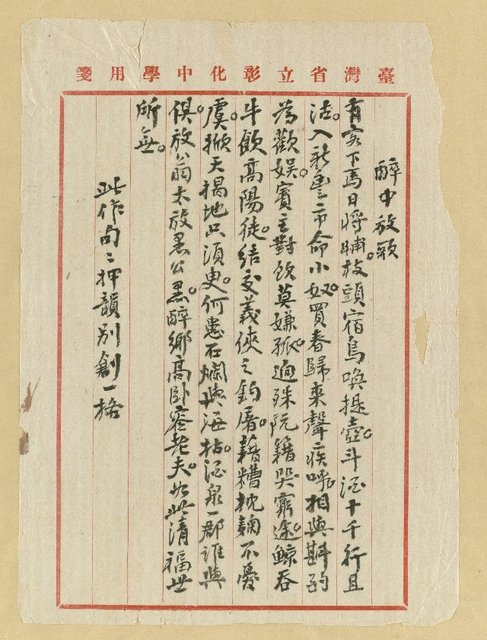 臺灣省立彰化中學用箋
醉中放歌
有客下馬日將晡枝頭宿鳥喚提壺斗酒十千行且
沽入新豐市命小奴買春歸來聲疾呼相與斟酌
為歡娛賓主對飲莫嫌孤迥殊阮籍哭窮途鯨吞
牛飲高陽徒結交義俠之釣屠藉糟枕麴不憂
虞掀天揭地只須臾何患石爛與海枯酒泉一郡誰與
俱放翁太放愚公愚醉鄉高臥容老夫如此清福世
所無
此作句々押韻別創一格